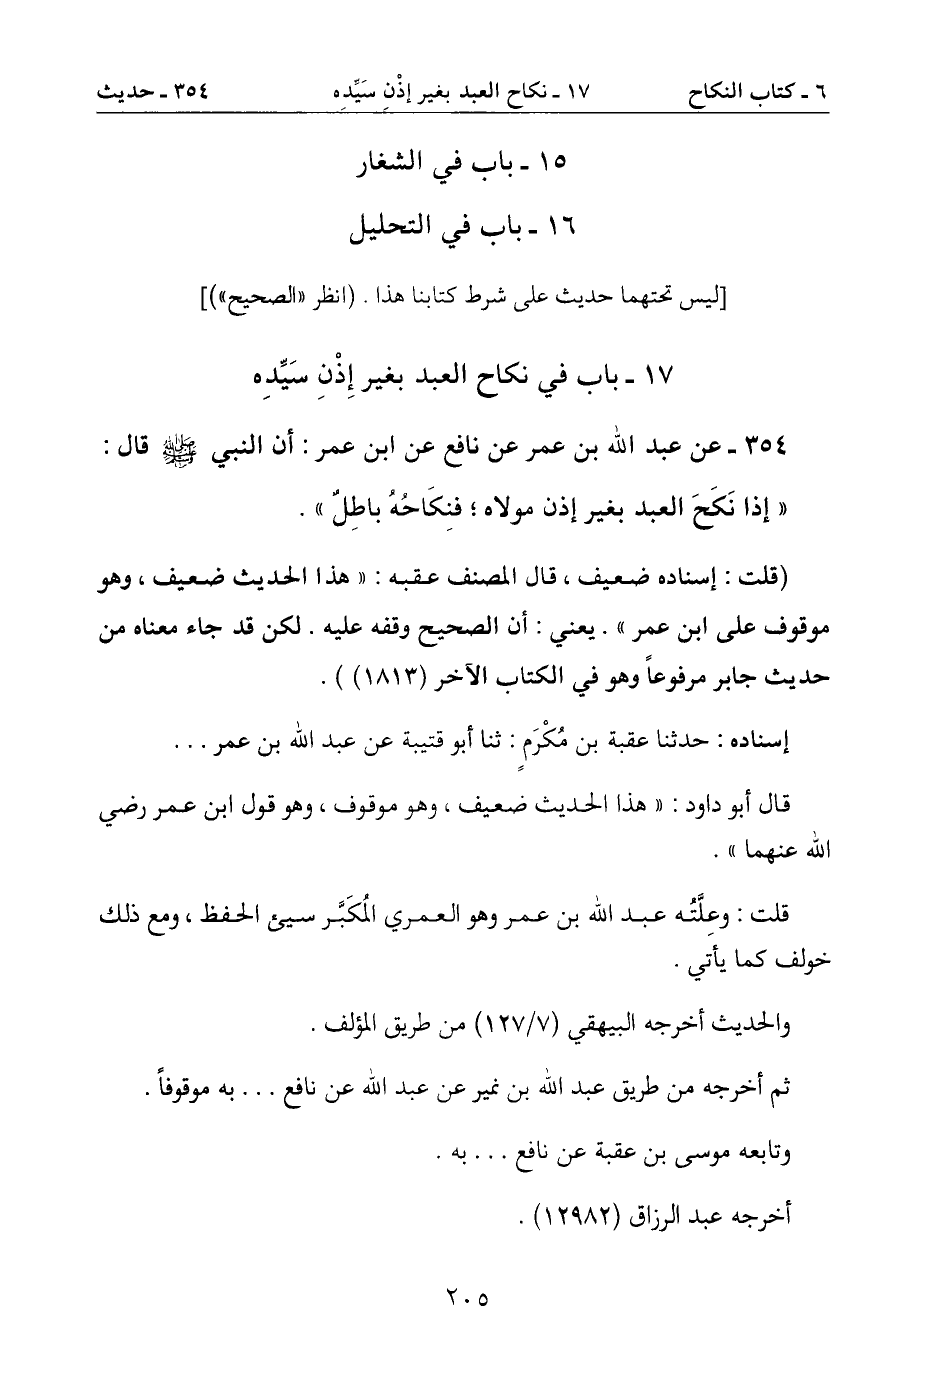 ٦ ـ كتاب النكاح ١٧ ـ نكاح العبد بغير إذْنِ سَيِّدِه ٣٥٤ ـ حديث
١٥ ـ باب في الشغار
١٦ ـ باب في التحليل
[ليس تحتهما حديث على شرط كتابنا هذا . (انظر «الصحيح»)]
١٧ ـ باب في نكاح العبد بغير إِذْنِ سَيِّدِه
٣٥٤ ـ عن عبد الله بن عمر عن نافع عن ابن عمر : أن النبي ﷺ قال :
« إذا نَكَحَ العبد بغير إذن مولاه ؛ فنِكَاحُهُ باطِلٌ » .
(قلت : إسناده ضعيف ، قال المصنف عقبه : « هذا الحديث ضعيف ، وهو
موقوف على ابن عمر » . يعني : أن الصحيح وقفه عليه . لكن قد جاء معناه من
حديث جابر مرفوعاً وهو في الكتاب الآخر (١٨١٣) ) .
إسناده : حدثنا عقبة بن مُكْرَمٍ : ثنا أبو قتيبة عن عبد الله بن عمر . . .
قال أبو داود : « هذا الحديث ضعيف ، وهو موقوف ، وهو قول ابن عمر رضي
الله عنهما » .
قلت : وعِلَّتُه عبد الله بن عمر وهو العمري المُكَبَّر سيئ الحفظ ، ومع ذلك
خولف كما يأتي .
والحديث أخرجه البيهقي (١٢٧/٧) من طريق المؤلف .
ثم أخرجه من طريق عبد الله بن نمير عن عبد الله عن نافع . . . به موقوفاً .
وتابعه موسى بن عقبة عن نافع . . . به .
أخرجه عبد الرزاق (١٢٩٨٢) .
٢٠٥